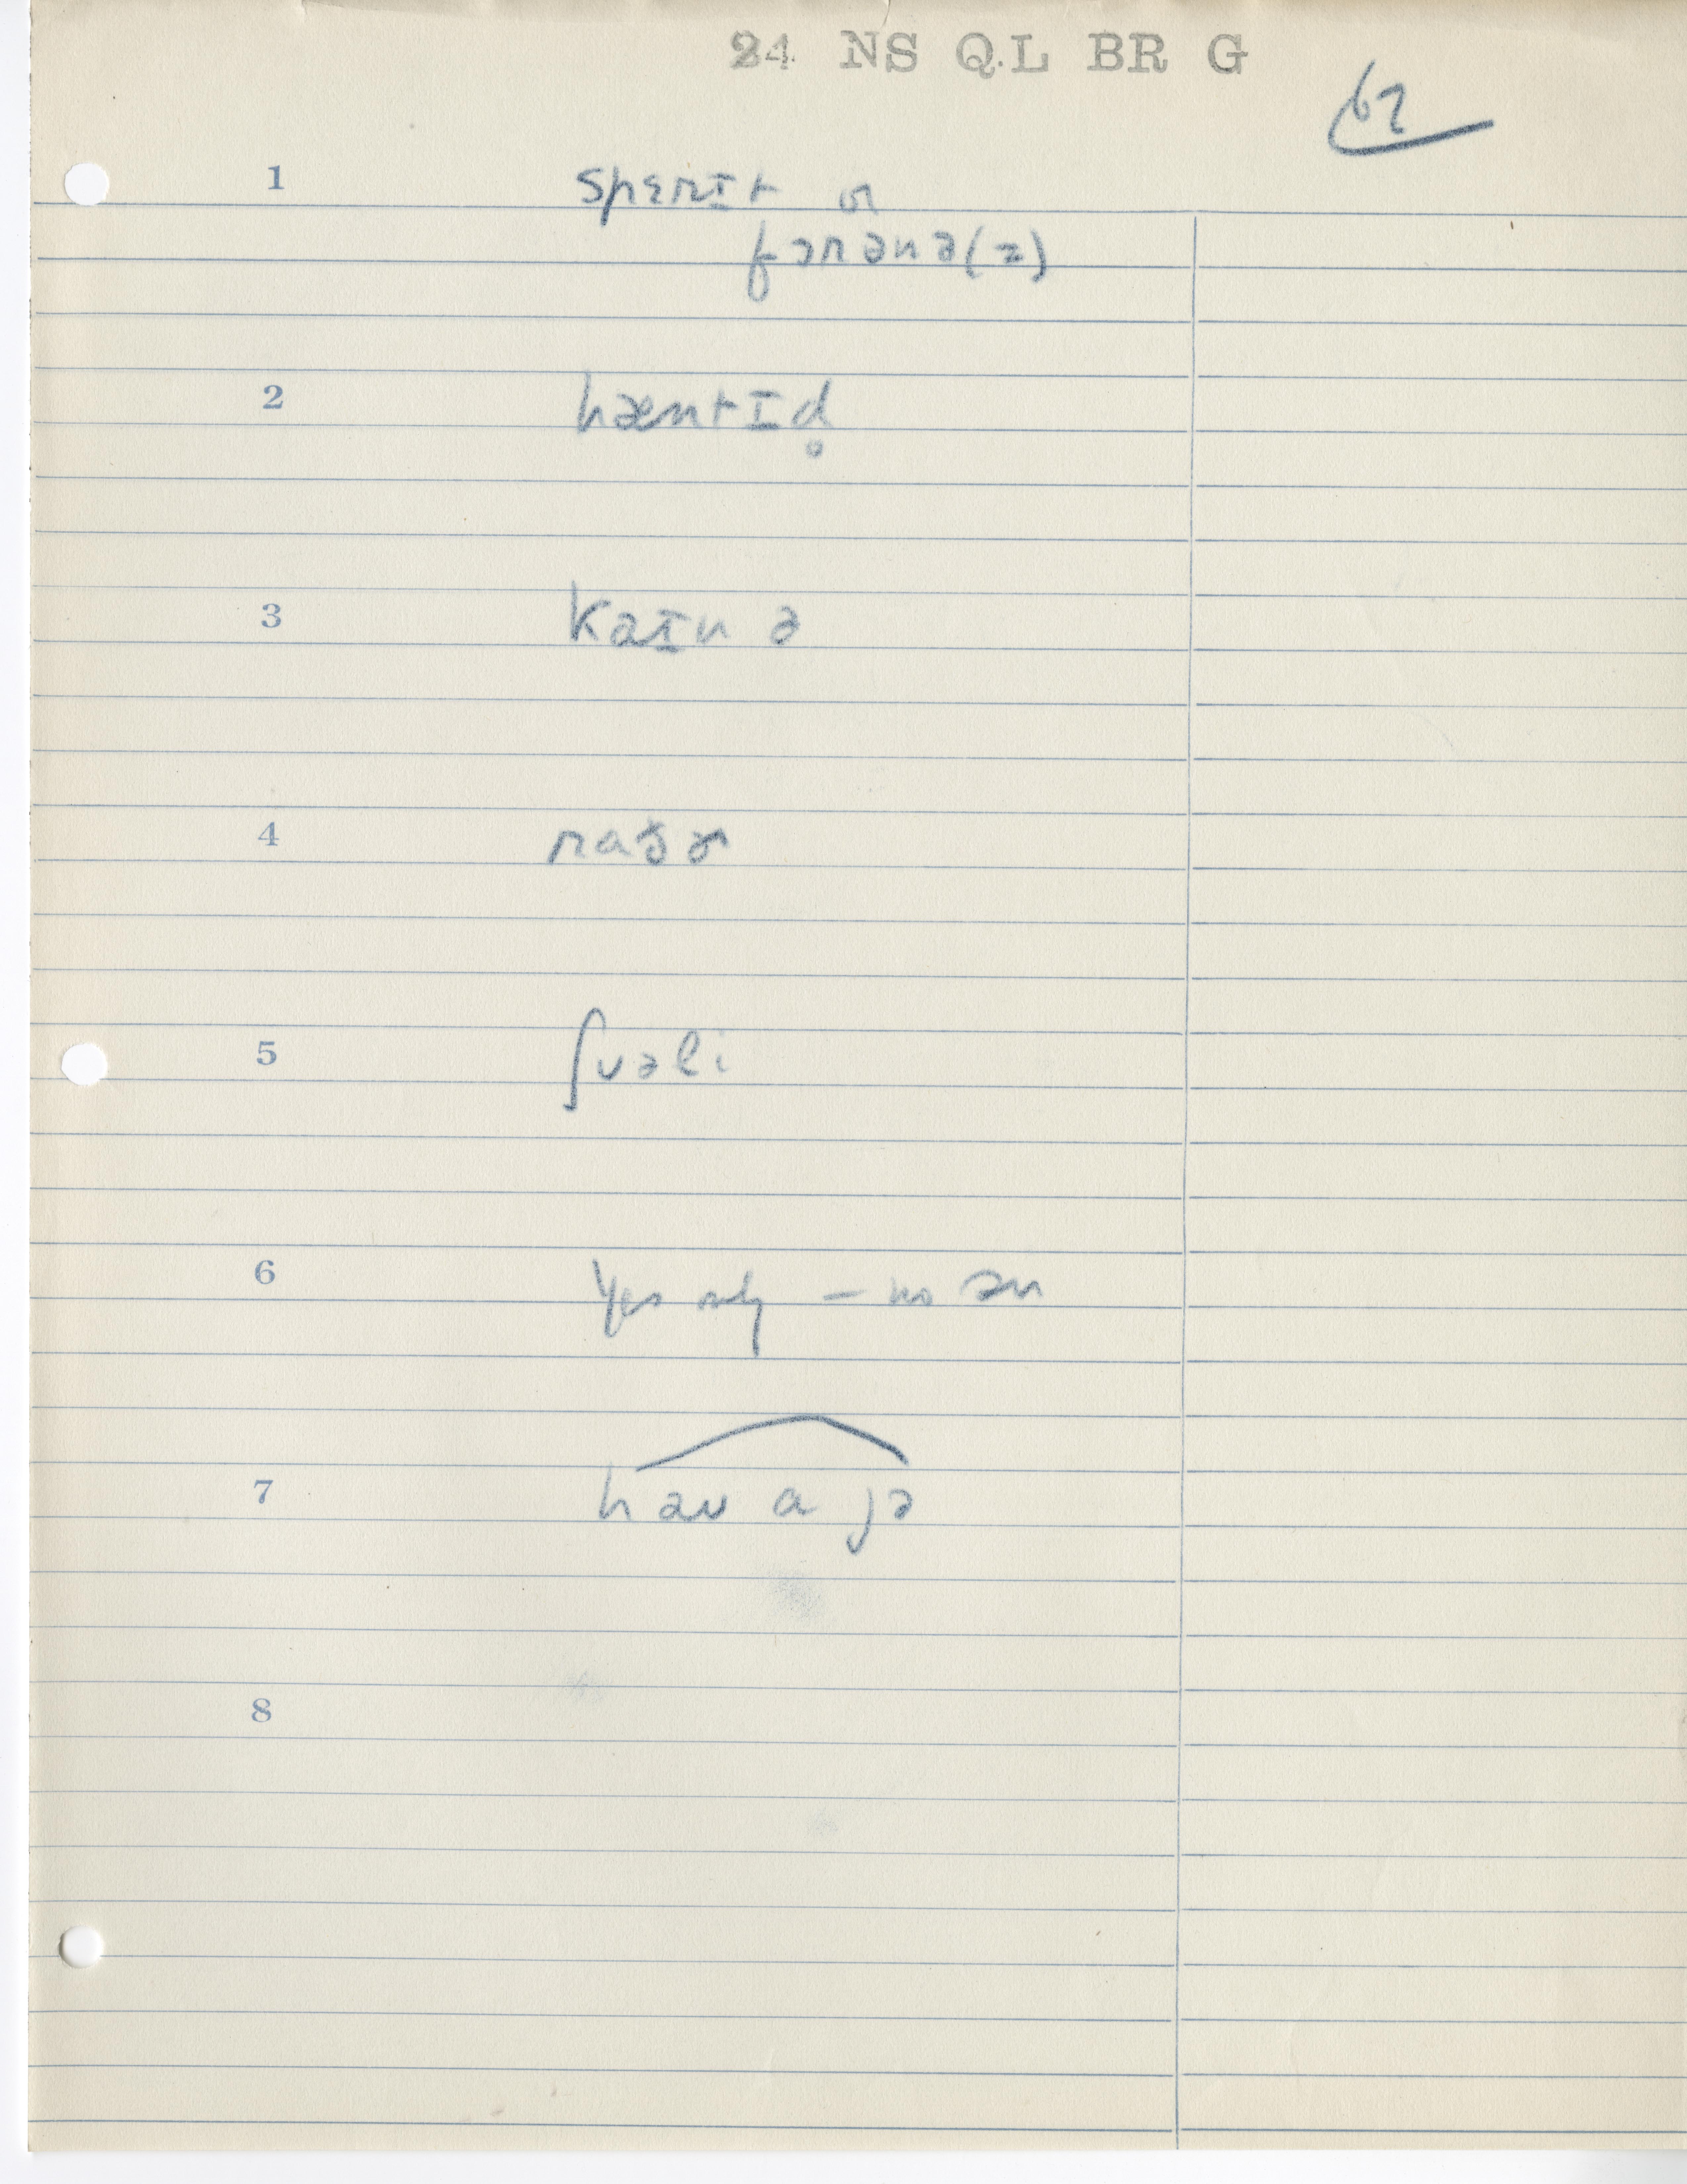 24 NS QL BR G
67
1 spɛrɪt or
fɔrənə(z)
2 hæntɪd̥
3 kaɪn ə
4 raðɚ
5 ʃuəli
6 Yes only – no ən
7 hau a jə
8